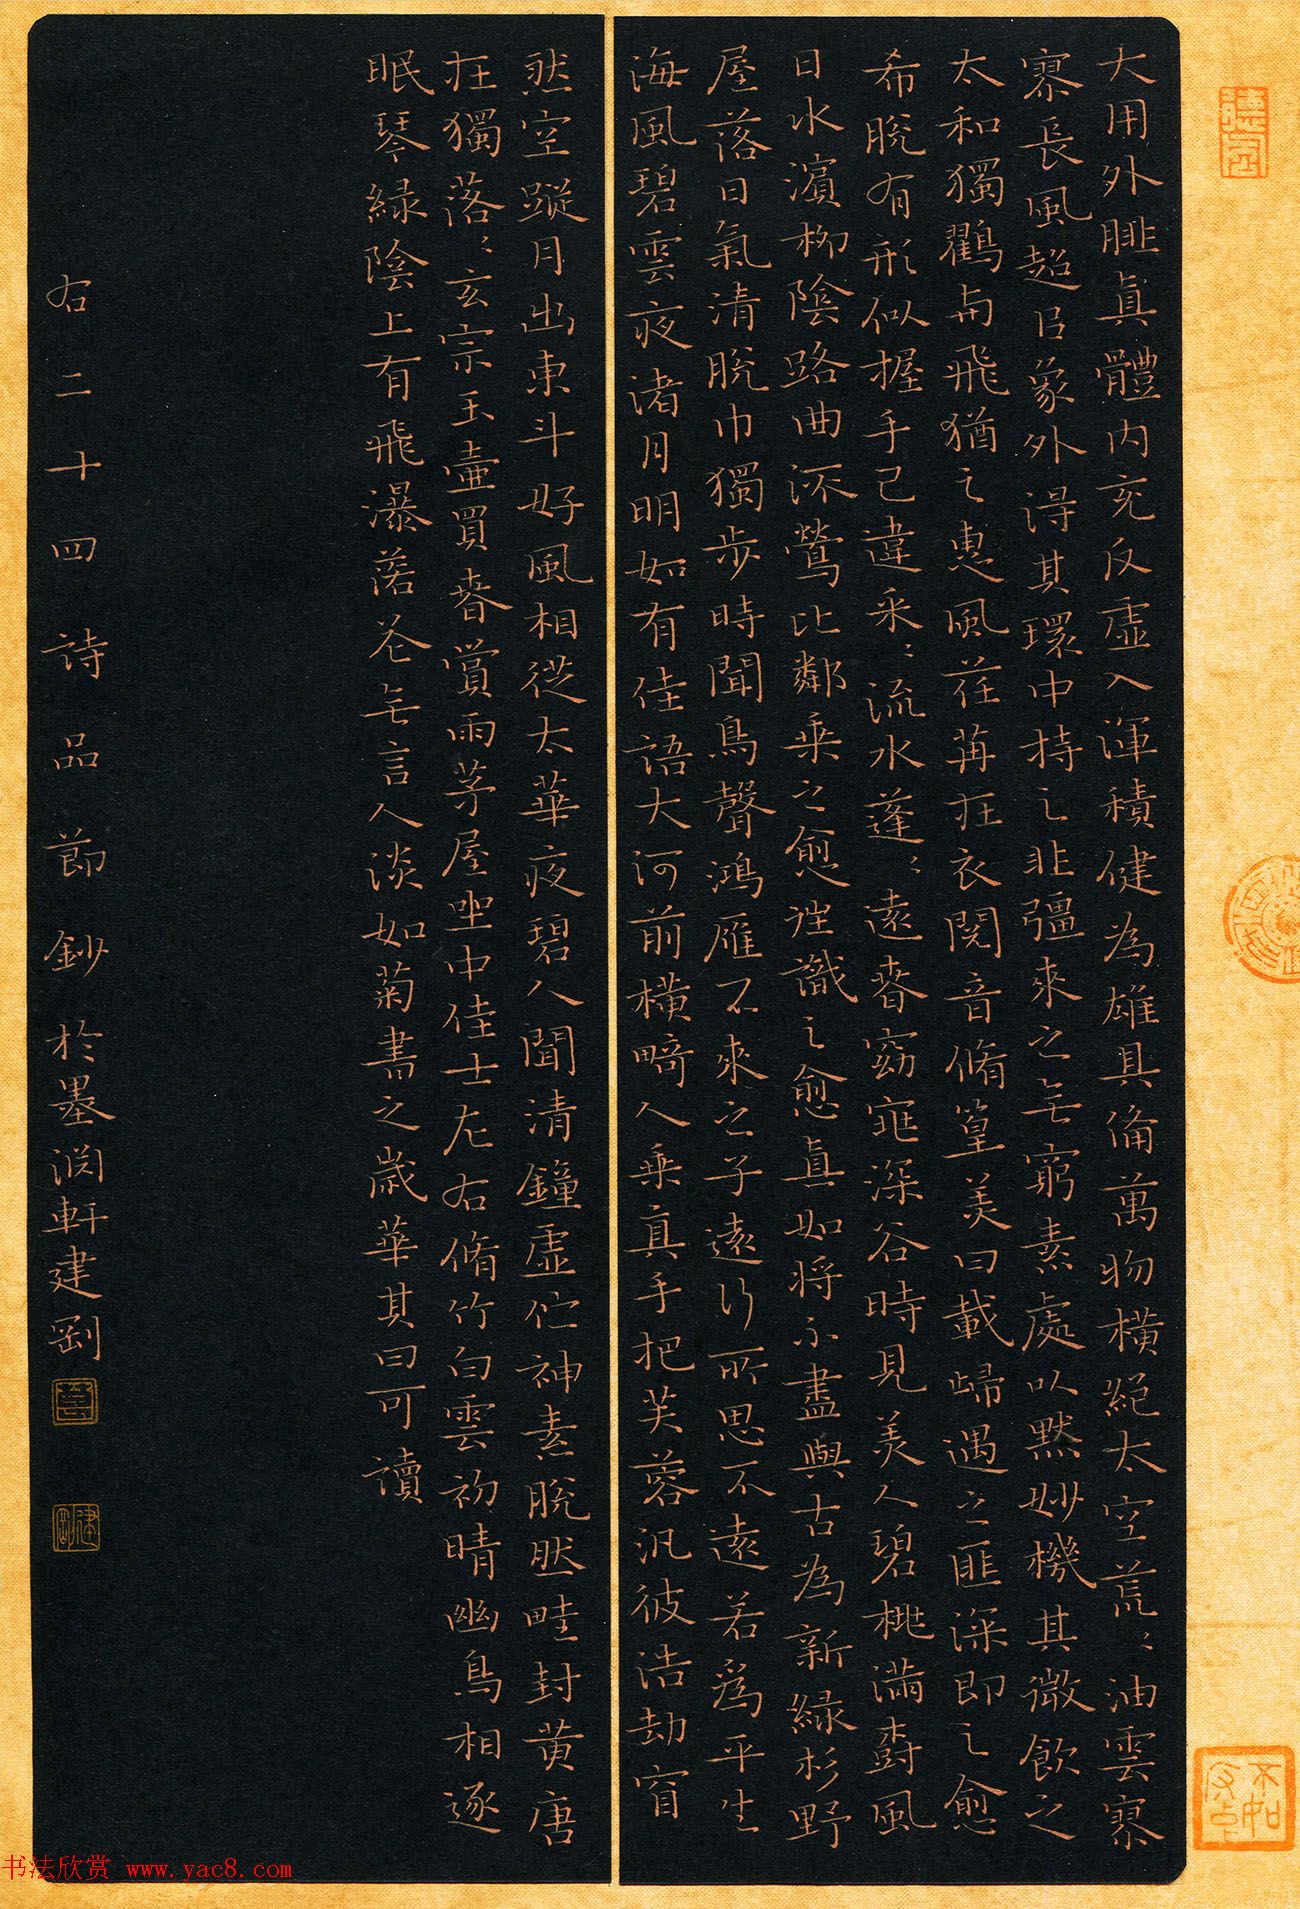 大用外腓真體内充反虛入渾積健為雄具備萬物橫絕太空荒〻油雲寥
寥長風超㠯象外得其環中持之非彊來之无窮素處以默妙機其微飲之
太和獨鶴與飛猶之惠風荏苒在衣閱音脩篁美曰載歸遇之匪深即之愈
希脫有形似握手已違采〻流水蓬〻遠春窈窕深谷時見美人碧桃滿樹風
日水濱柳陰路曲流鶯比鄰乘之愈往識之愈真如將不盡與古為新綠杉野
屋落日氣清脫巾獨步時聞鳥聲鴻雁不來之子遠行所思不遠若為平生
海風碧雲夜渚月明如有佳語大河前橫畸人乘真手把芙蓉汎彼浩劫窅
然空蹤月出東斗好風相從太華夜碧人聞清鐘虛佇神素脫然畦封黃唐
在獨落〻玄宗玉壷買春賞雨茅屋坐中佳士左右脩竹白雲初晴幽鳥相逐
眠琴綠陰上有飛瀑落花无言人淡如菊書之歲華其曰可讀
右二十四詩品節鈔於墨淵軒建剛
建剛
不如
书法欣赏 www.yac8.com